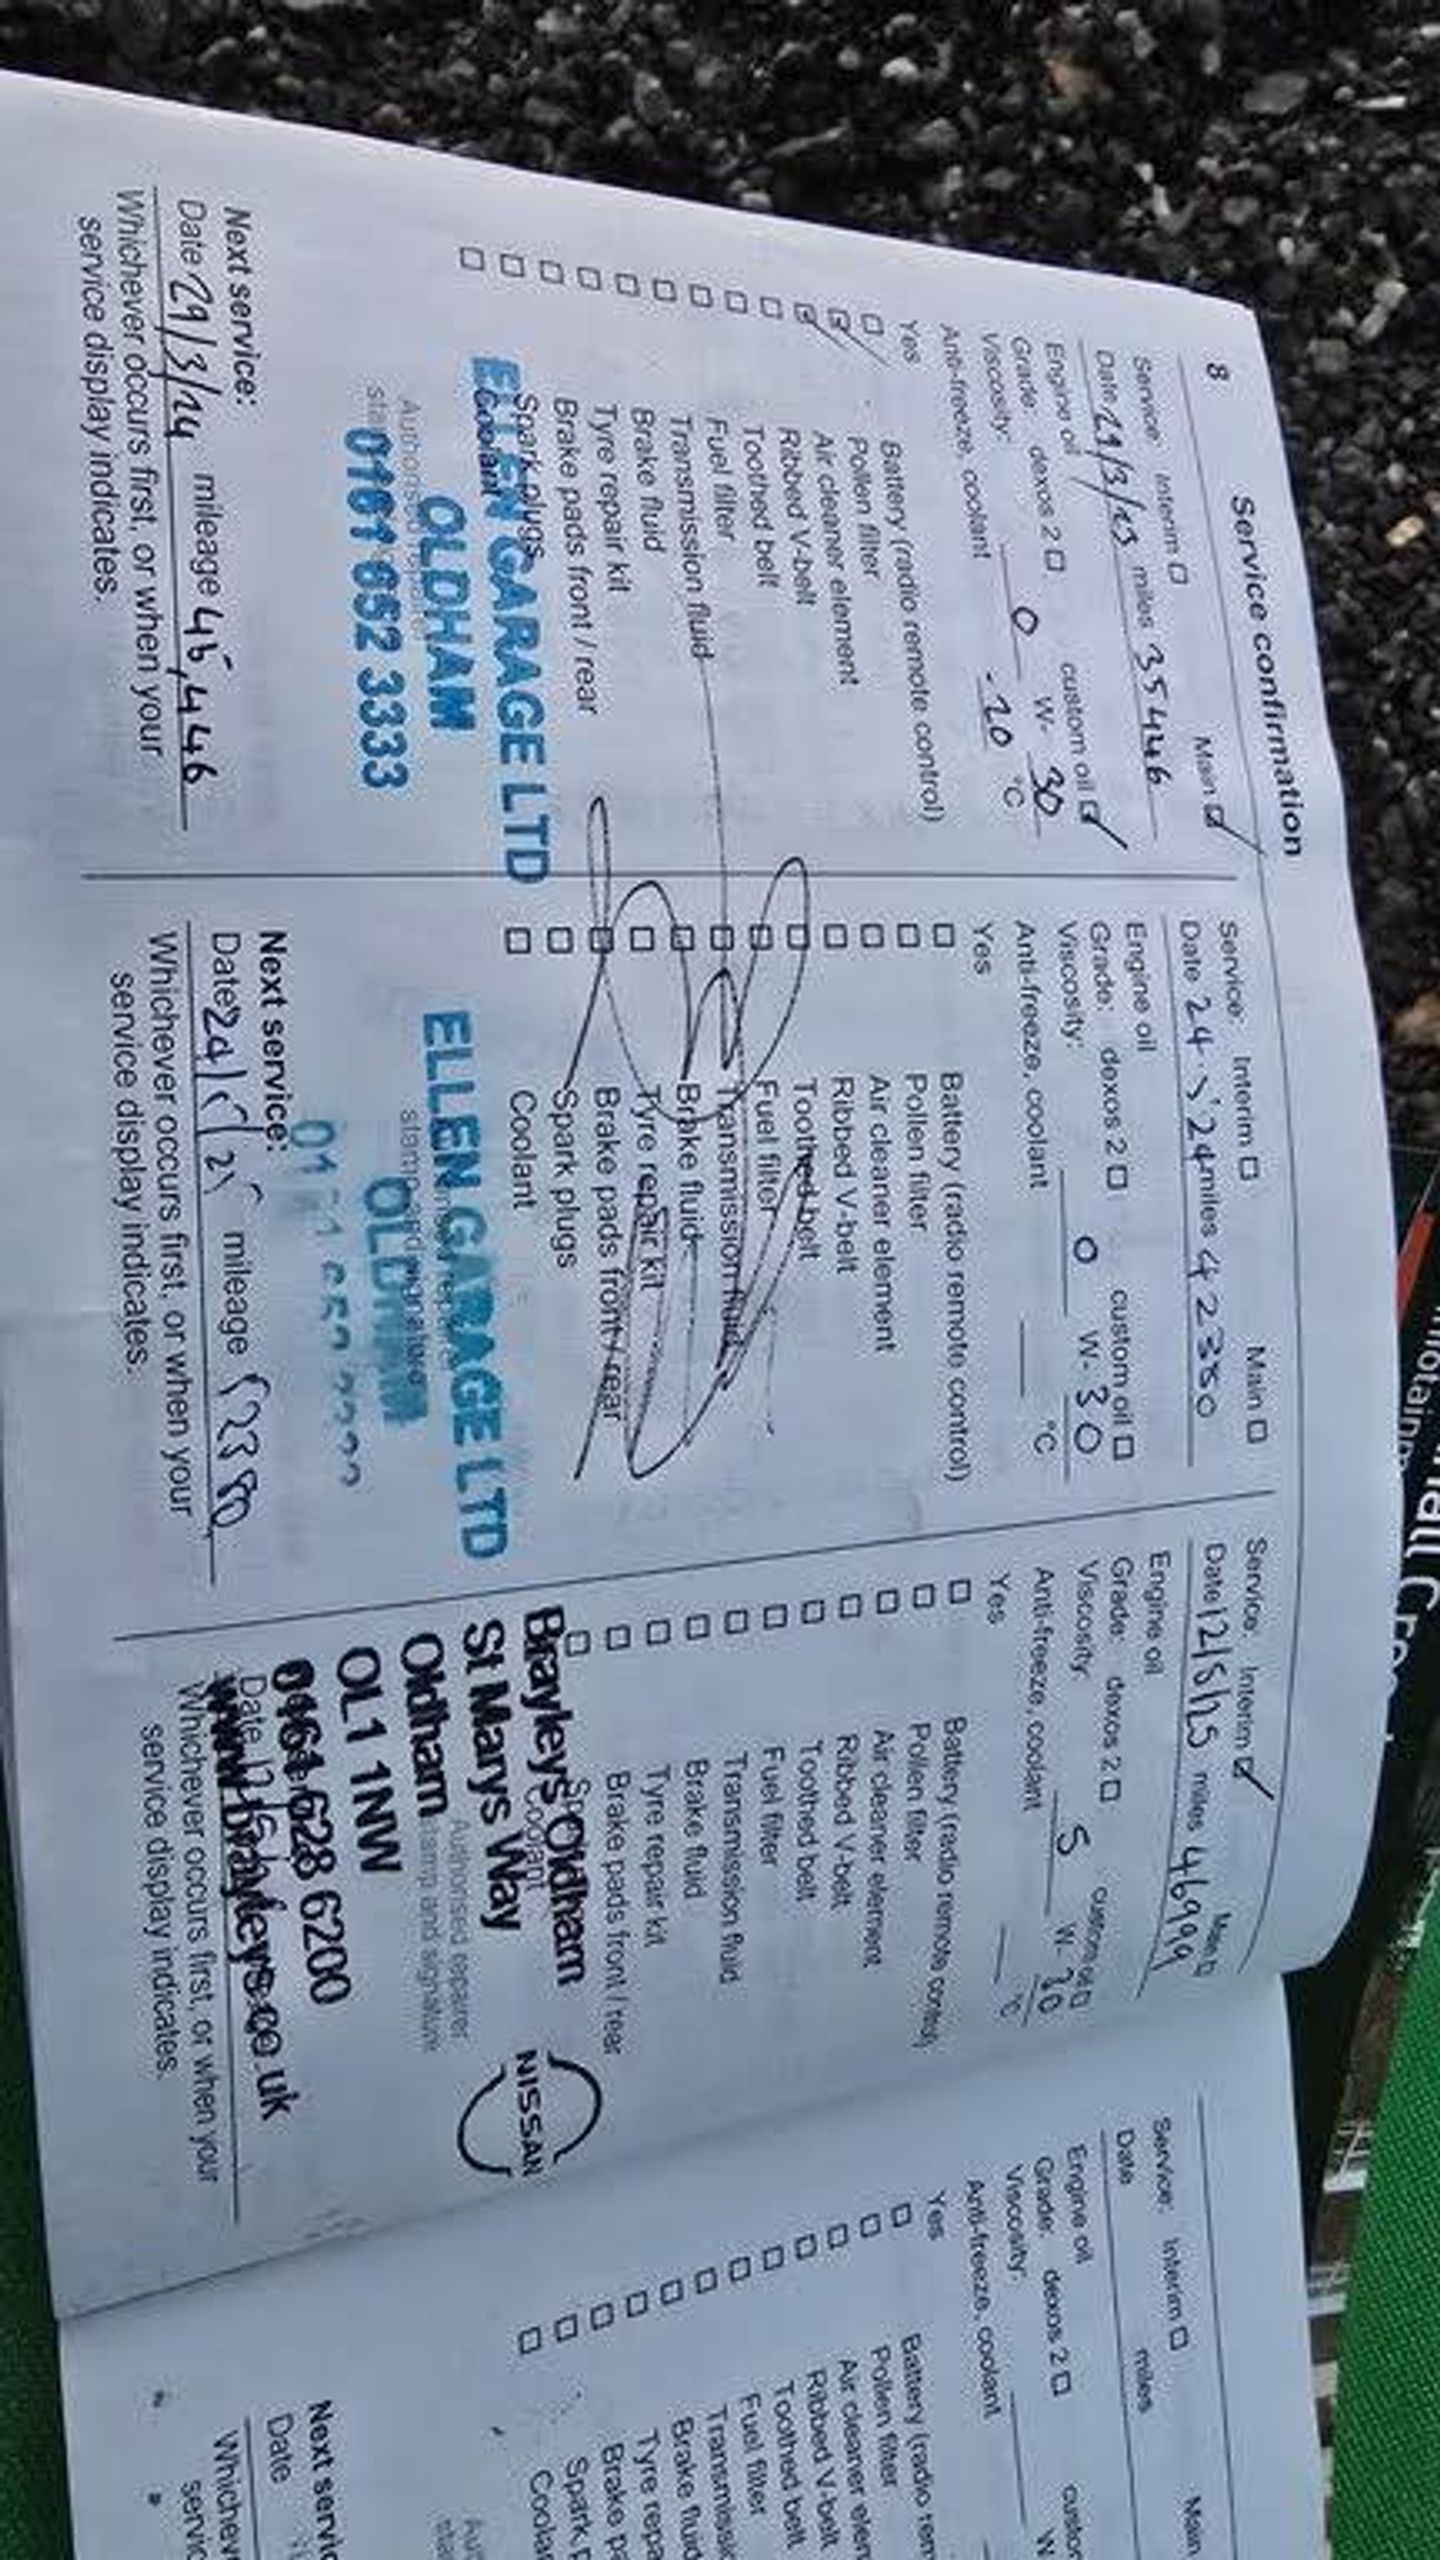 8
Service confirmation
Service: Interim Main
Date 29/3/23 miles 35446
Engine oil
Grade: dexos 2 custom oil
Viscosity: 0 W- 30
Anti-freeze, coolant -20 °C
Yes
Battery (radio remote control)
Pollen filter
Air cleaner element
Ribbed V-belt
Toothed belt
Fuel filter
Transmission fluid
Brake fluid
Tyre repair kit
Brake pads front / rear
Spark plugs
Coolant
ELLEN GARAGE LTD
OLDHAM
0161 652 3333
Next service:
Date 29/3/24 mileage 45,446
Whichever occurs first, or when your
service display indicates.
Service: Interim Main
Date 24.5.24 miles 42380
Engine oil
Grade: dexos 2 custom oil
Viscosity: 0 W- 30
Anti-freeze, coolant °C
Yes
Battery (radio remote control)
Pollen filter
Air cleaner element
Ribbed V-belt
Toothed belt
Fuel filter
Transmission fluid
Brake fluid
Tyre repair kit
Brake pads front / rear
Spark plugs
Coolant
ELLEN GARAGE LTD
OLDHAM
Next service:
Date 24/5/25 mileage 52380
Whichever occurs first, or when your
service display indicates.
Service: Interim Main
Date 12/5/25 miles 46999
Engine oil
Grade: dexos 2 custom oil
Viscosity: 5 W- 30
Anti-freeze, coolant °C
Yes
Battery (radio remote control)
Pollen filter
Air cleaner element
Ribbed V-belt
Toothed belt
Fuel filter
Transmission fluid
Brake fluid
Tyre repair kit
Brake pads front / rear
Coolant
Brayleys Oldham
St Marys Way
Oldham
OL1 1NW
0161 628 6200
www.brayleys.co.uk
NISSAN
Authorised repairer
stamp and signature
Date
Whichever occurs first, or when your
service display indicates.
Service: Interim Main
Date miles
Engine oil
Grade: dexos 2
Viscosity:
Anti-freeze, coolant
Yes
Battery (radio rem
Pollen filter
Air cleaner elem
Ribbed V-belt
Toothed belt
Fuel filter
Transmissi
Brake fluid
Tyre repa
Brake pa
Spark p
Coolan
Next servic
Date
Whichev
servic